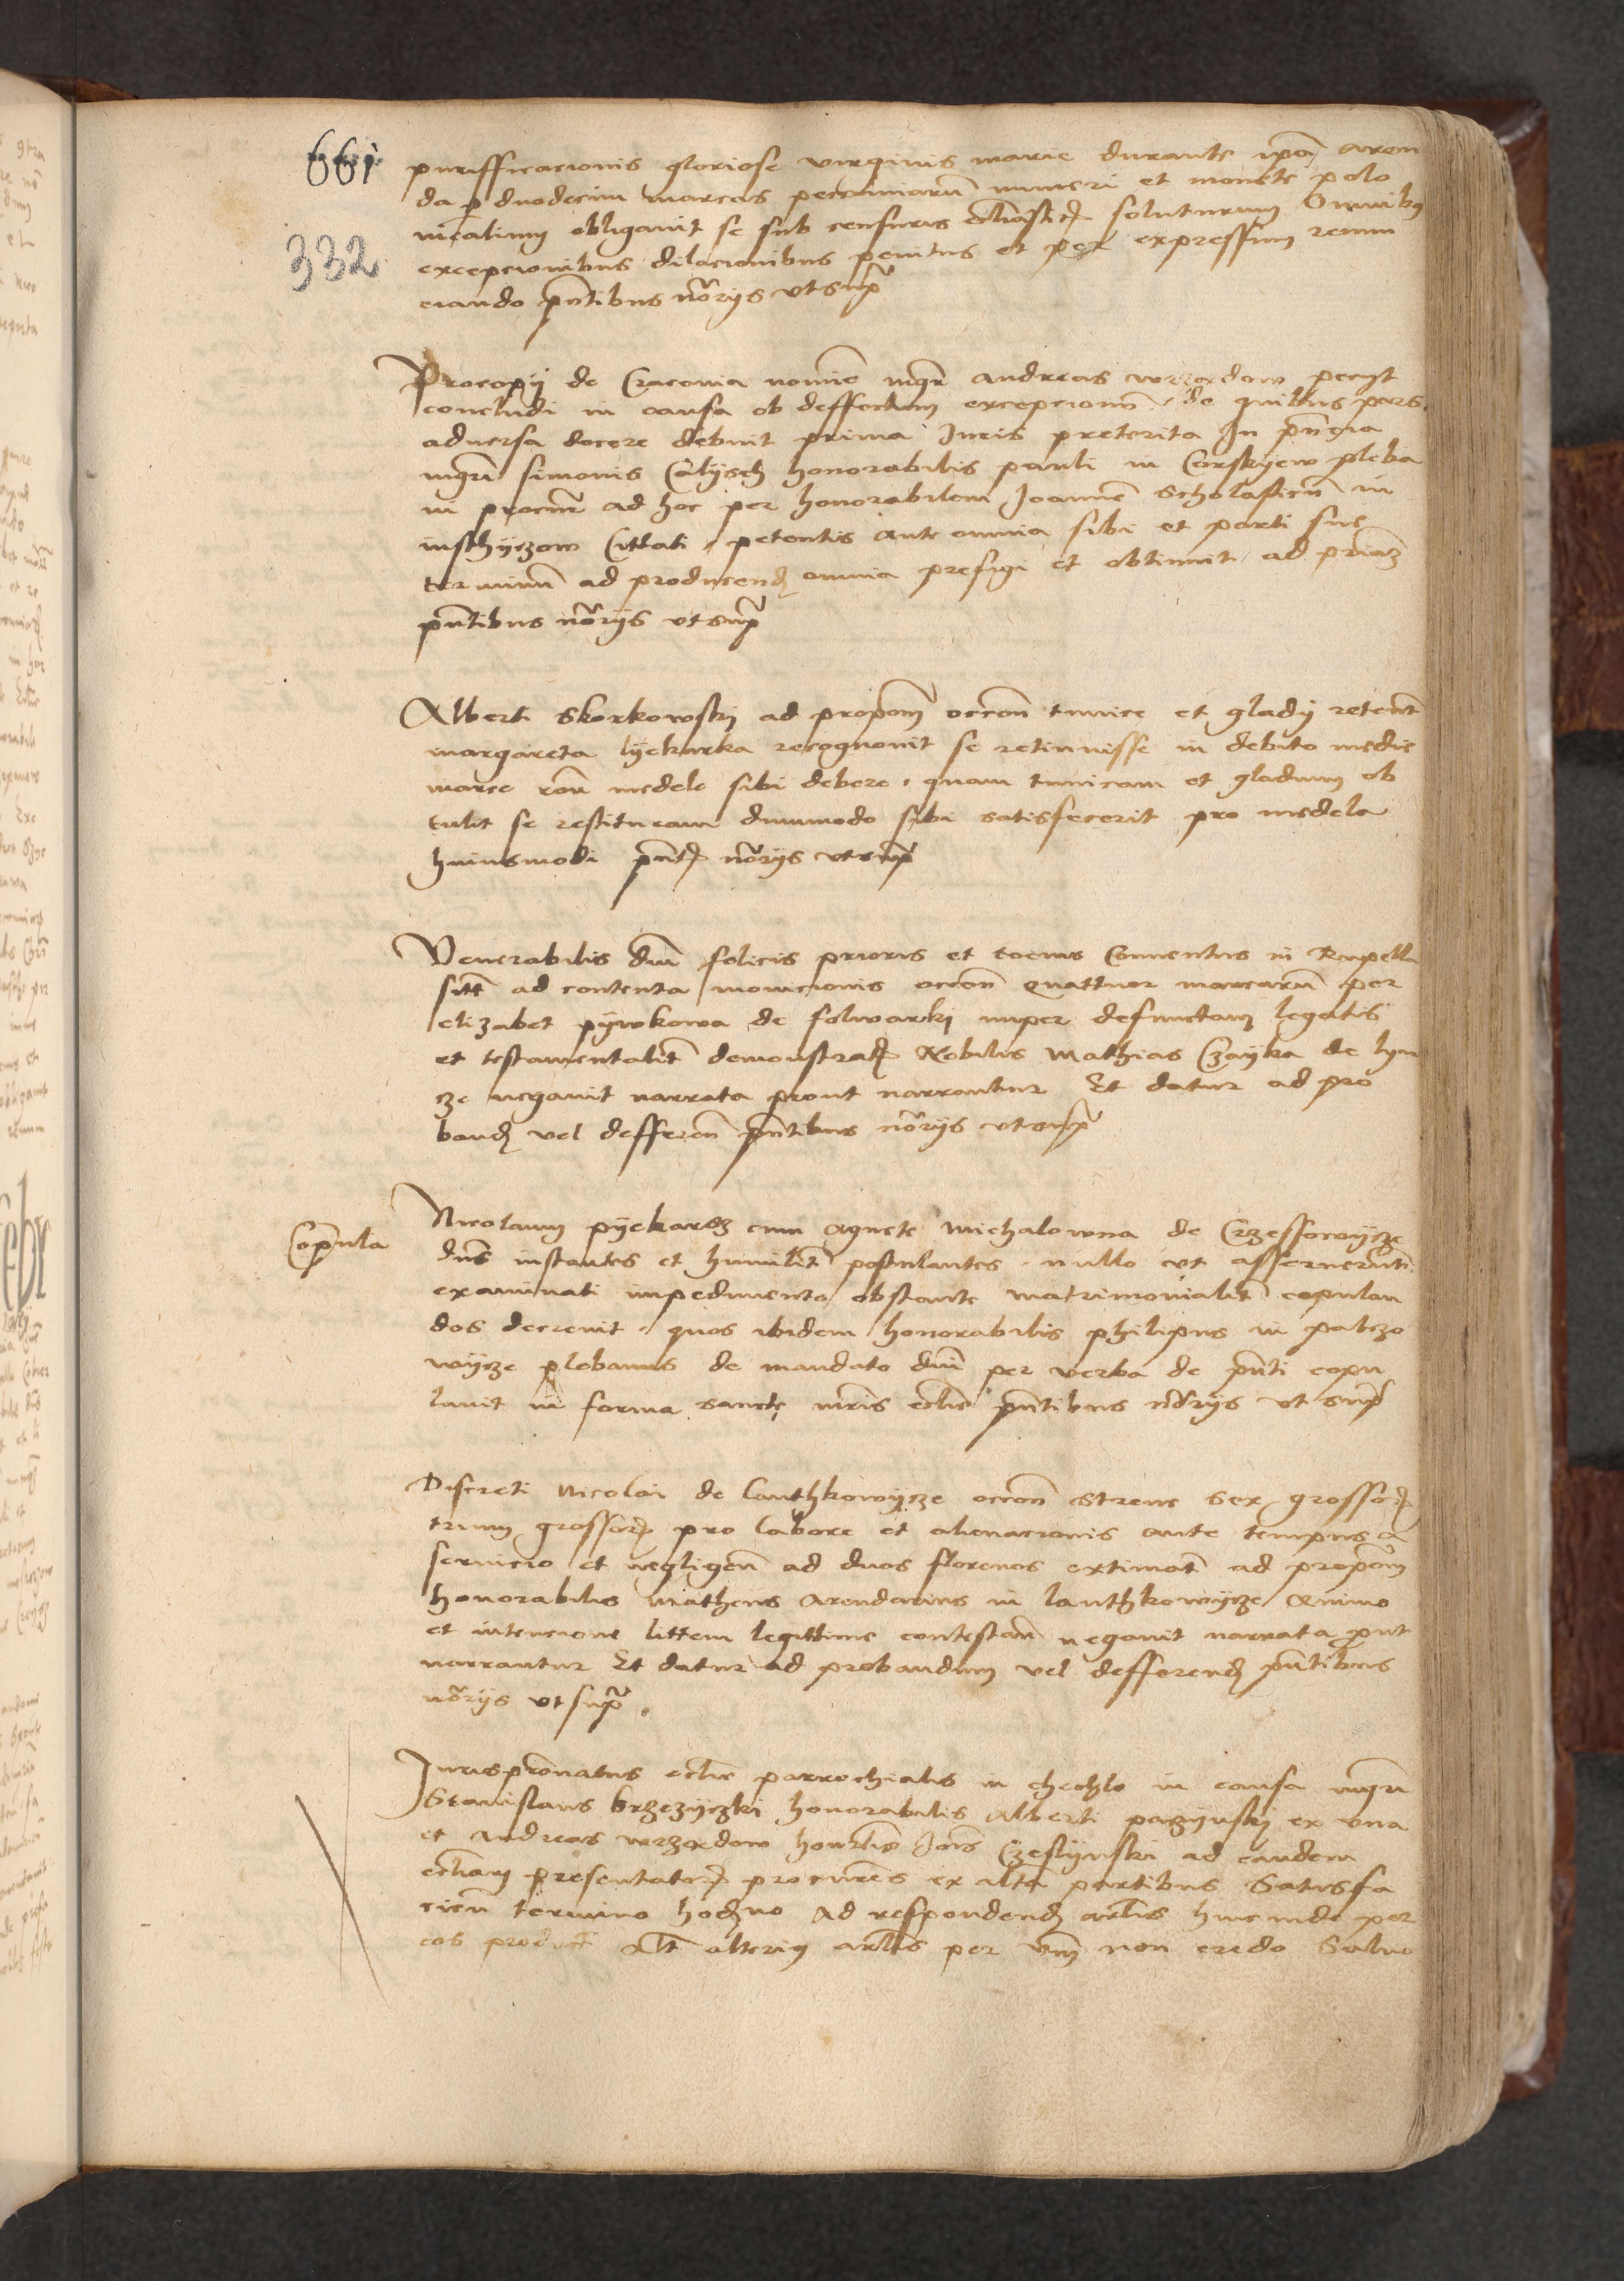 661
332
purifficacionis gloriose virginis marie durante ip̃a aren
da p duodecim marcas pecuniarũ numeri et monete polo
nicalium obligavit se sub censuris eccliasticꝭ soluturum Omnibꝰ
excepcionibus dilacionibus penitus et per expressum renun
ciando pñtibus nõrijs vtsup̃
Procopij de Cracovia nomie mgr̃ Andreas wrzexdow pecyt
concludi in causa ob deffectum excepcionũ de quibus pars
adversa docere debuit prima Juris preterita In pñcia
mgr̃i simonis Calijsch honorabilis pauli in Corskyew pleba
ni procur̃ ad hoc per honorabilem Joannẽ scholasticũ in
citati petentis ante omnia sibi et parti sue
terminũ ad producendꝭ omnia prefigi et obtinuit ad primã
pñtibus nõrijs vtsup̃
Albert Skorkowski ad propõm occõn tunice et gladij retent̃
margareta lyekarka recognovit se retinuisse in debito medie
marce rõne medele sibi debere quam tunicam et gladium ob
tulit se restituram dummodo sibi satisfecerit pro medela
huiusmodi pñtꝭ nõrijs vtsup̃
Venerabilis dñi felicis prioris et tocius Conventus in Rupella
sitt̃ ad contenta monicionis occõn quattuor marcarũ per
elizabet pywkowa de folwarki nuper defunctam legatis
et testamentalit̃ demonstratꝭ Nobilis Mathias Czayka de lyn
cze negavit narrata prout narrantur Et datur ad pro
bandꝭ vel defferen̄ pñtibus nõrijs vtsup̃
Copula
Nicolaum pyekarz cum Agnete Michalowna de Crzessowycze
dñs instantes et humilit̃ postulantes nullo vt assuerunt
examinati impedimento obstante matrimonialit̃ copulan
dos decrevit quos ibidem honorabilis philipus in palczo
wycze plebanus de mandato dñi per verba de pñti copu
lavit in forma sancte mr̃is ecclie pñtibus nõrijs vt sup̃
Discreti Nicolai de lanthkowycze occõn strene sex grossorꝭ
trium grossorꝭ pro labore et alienacionis ante tempus a
servicio et negligen̄ ad duos florenos extimat̃ ad propõm
honorabilis Matheus Arendarius in lanthkowycze animo
et intencione littem legittime contestan̄ negavit narrata prout
narrantur Et datur ad probandum vel defferendꝭ pñtibus
nõrijs vt sup̃
Jurispr̃onatus ecclie parrochialis in chechlo in causa mgr̃i
Stanislaus Brzezyczki honorabilis Alberti paczynski ex vna
et Andreas wrzexdow honẽlis Joñis Czeslynski ad eandem
eccliam presentatorꝭ procur̃es ex alt̃a partibus Satisfa
cien̄ termino hodꝭno ad respondendꝭ artl̃is hincinde per
eos product̃ alt̃ alterius artl̃is per vm̃ non credo Salvo